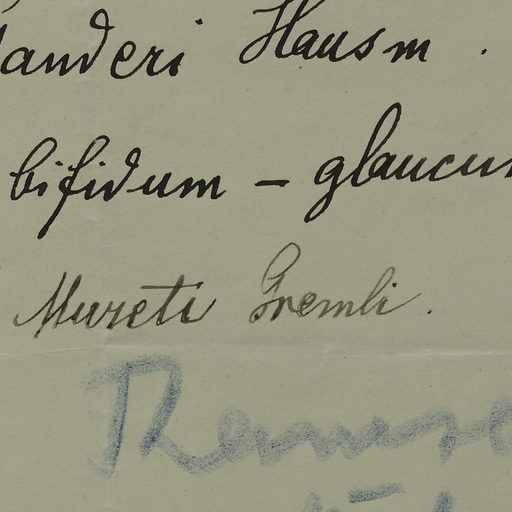 landeri Hausm.
bifidum - glaucu
Mureti Gremli.